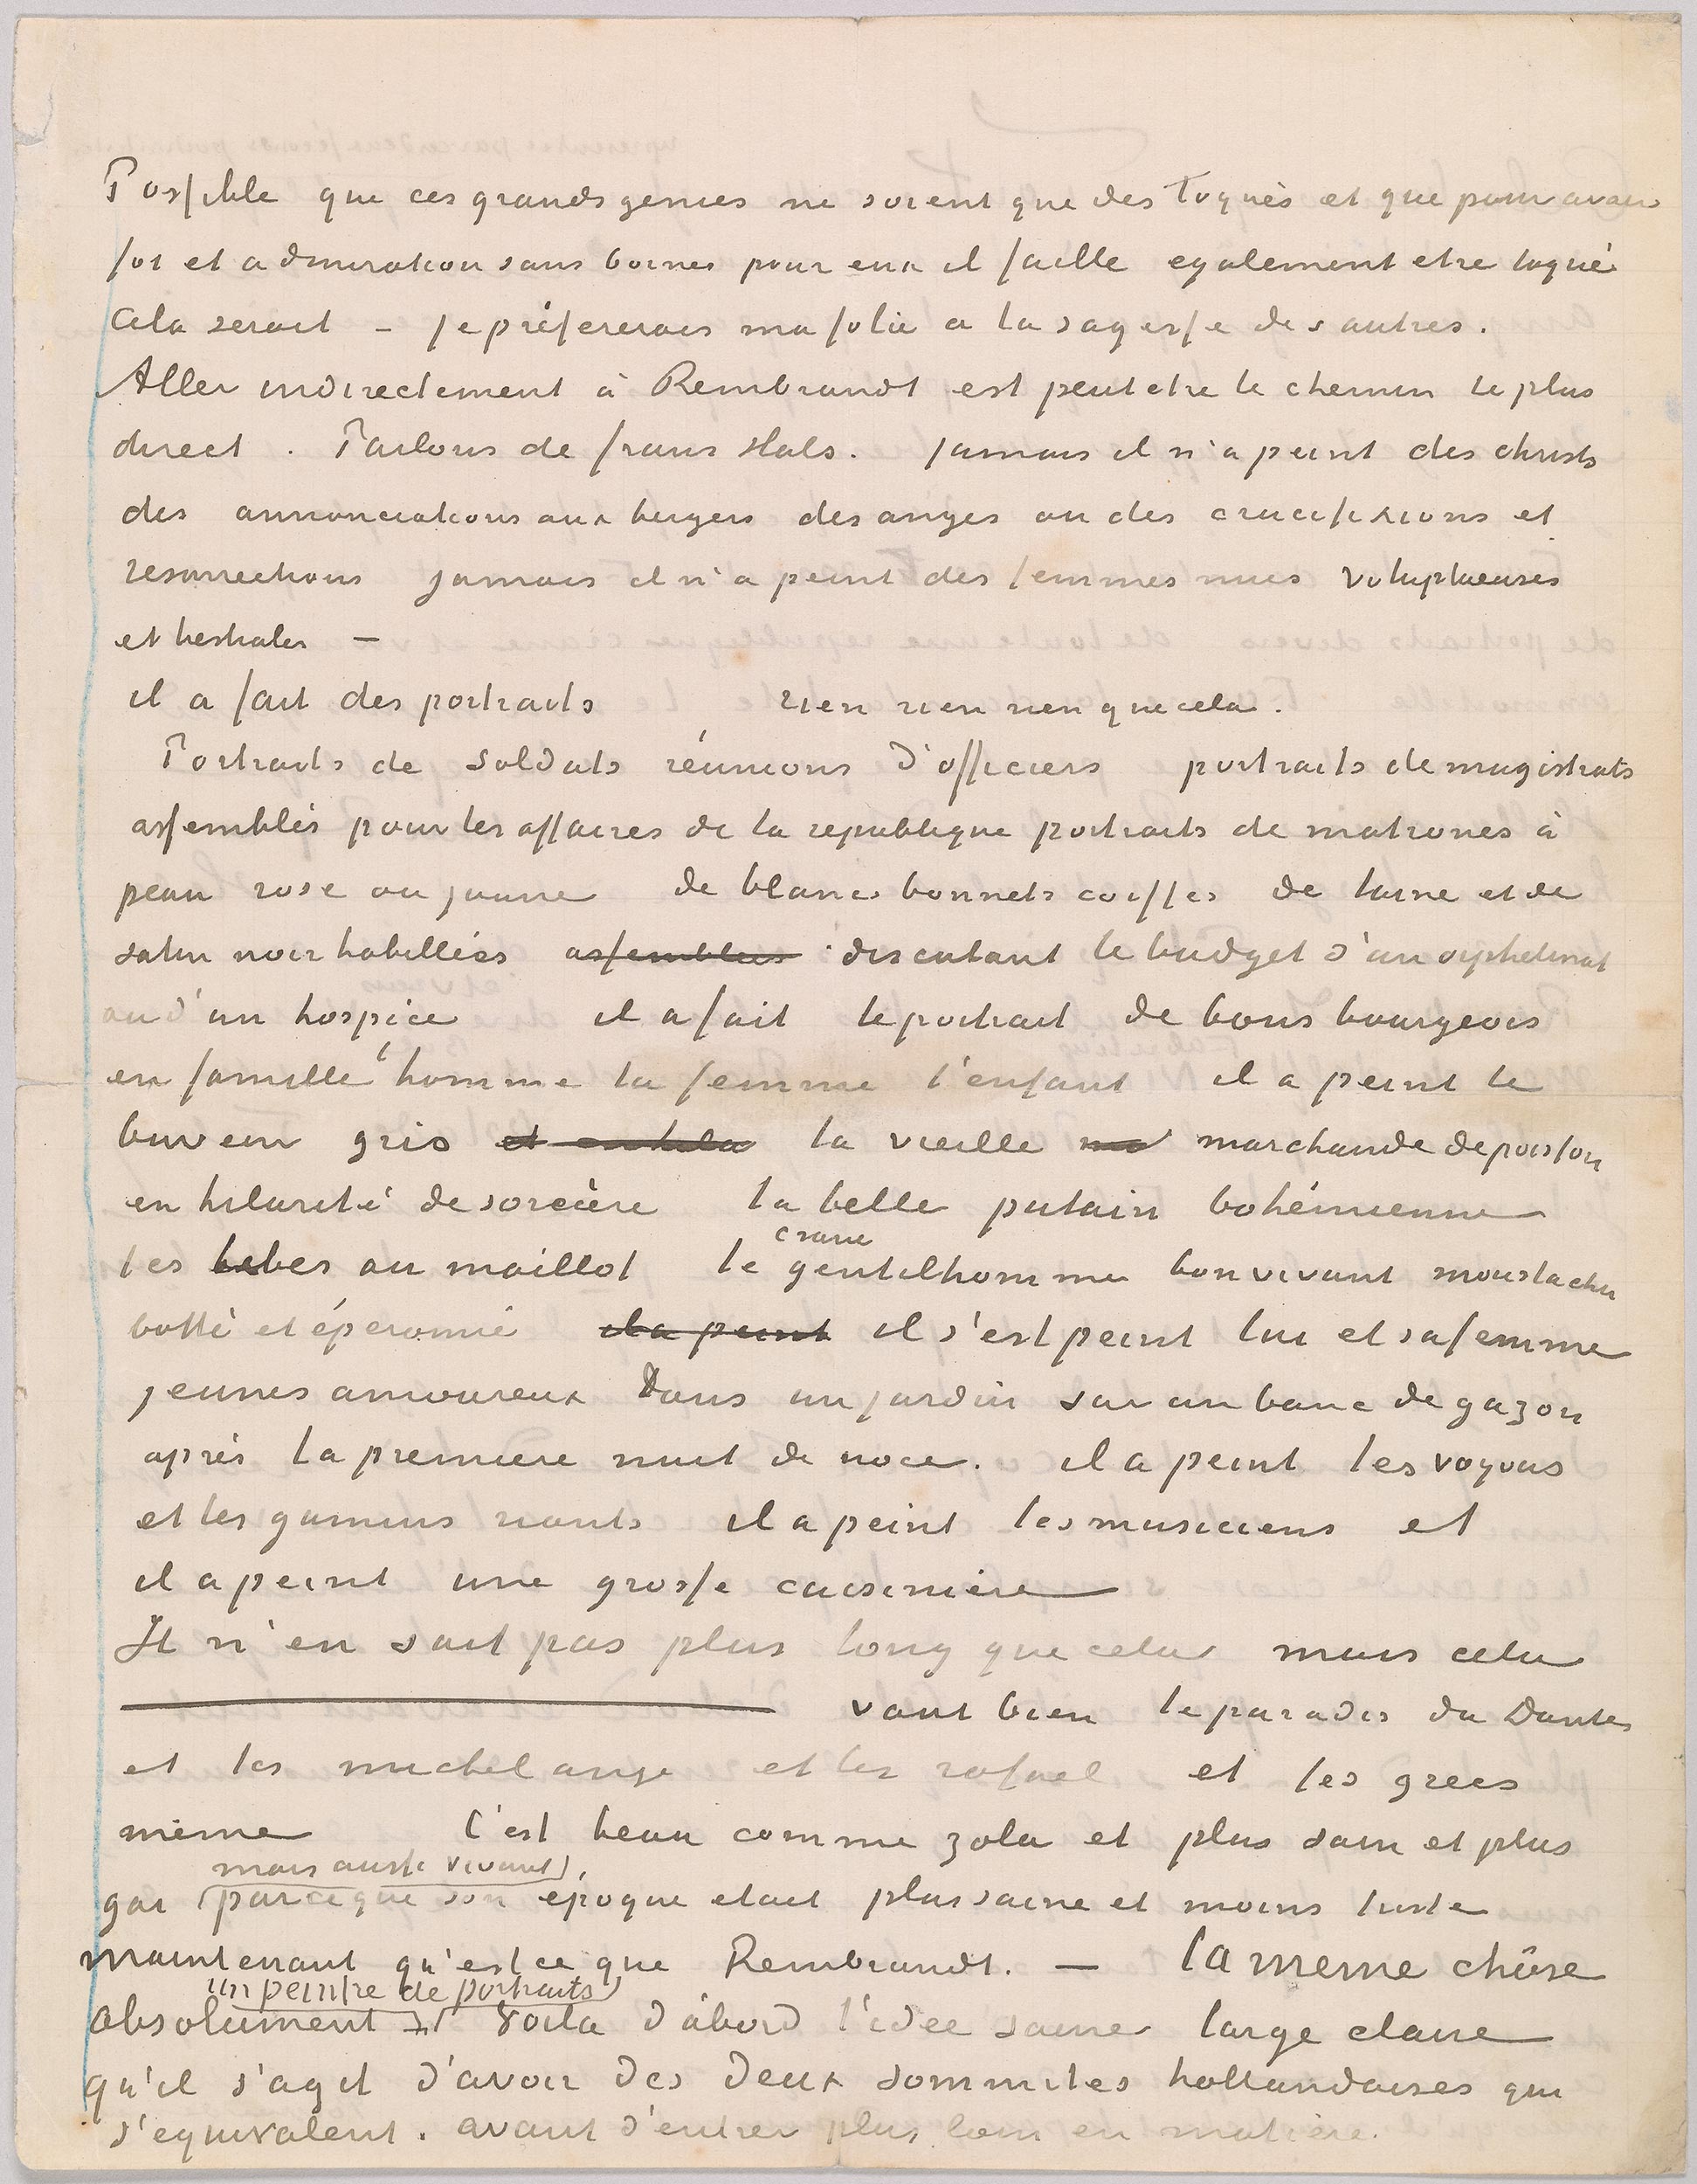 Possible que ces grands genies ne soient que des toqués et que pour avoir
foi et admiration sans bornes pour eux il faille egalement etre toqué
Cela serait – je préfererais ma folie a la sagesse des autres.
Aller indirectement à Rembrandt est peut etre le chemin le plus
direct. Parlons de frans Hals. Jamais il n'a peint des christs
des annonciations aux bergers des anges ou des crucifixions et
resurrections jamais il n'a peint des femmes nues voluptueuses
et bestiales –
il a fait des portraits rien rien rien que cela.
Portraits de soldats réunions d'officiers portraits de magistrats
assemblés pour les affaires de la republique portraits de matrones à
peau rose ou jaune de blancs bonnets coiffes de laine et de
satin noir habillées assemblees discutant le budget d'un orphelinat
ou d'un hospice il a fait le portrait de bons bourgeois
en famille l'homme la femme l'enfant il a peint le
buveur gris la vieille ma marchande de poisson
en hilarité de sorcière la belle putain bohémienne
les bebes au maillot le crane gentilhomme bon vivant moustachu
botté et éperonné il a peint il s'est peint lui et sa femme
jeunes amoureux dans un jardin sur un banc de gazon
après la premiere nuit de noce. il a peint les voyous
et les gamins riants il a peint les musiciens et
il a peint une grosse cuisinière
Il n'en sait pas plus long que cela mais cela
vaut bien le paradis du Dante
et les michel ange et les rafael et les grecs
même C'est beau comme zola et plus sain et plus
mais aussi vivant,
gai parceque son epoque etait plus saine et moins triste
maintenant qu'est ce que Rembrandt. – la meme chôse
un peintre de portraits
absolument Voila d'abord l'idee saine large claire
qu'il s'agit d'avoir des deux sommites hollandaises qui
s'equivalent. avant d'entrer plus loin en matiere.